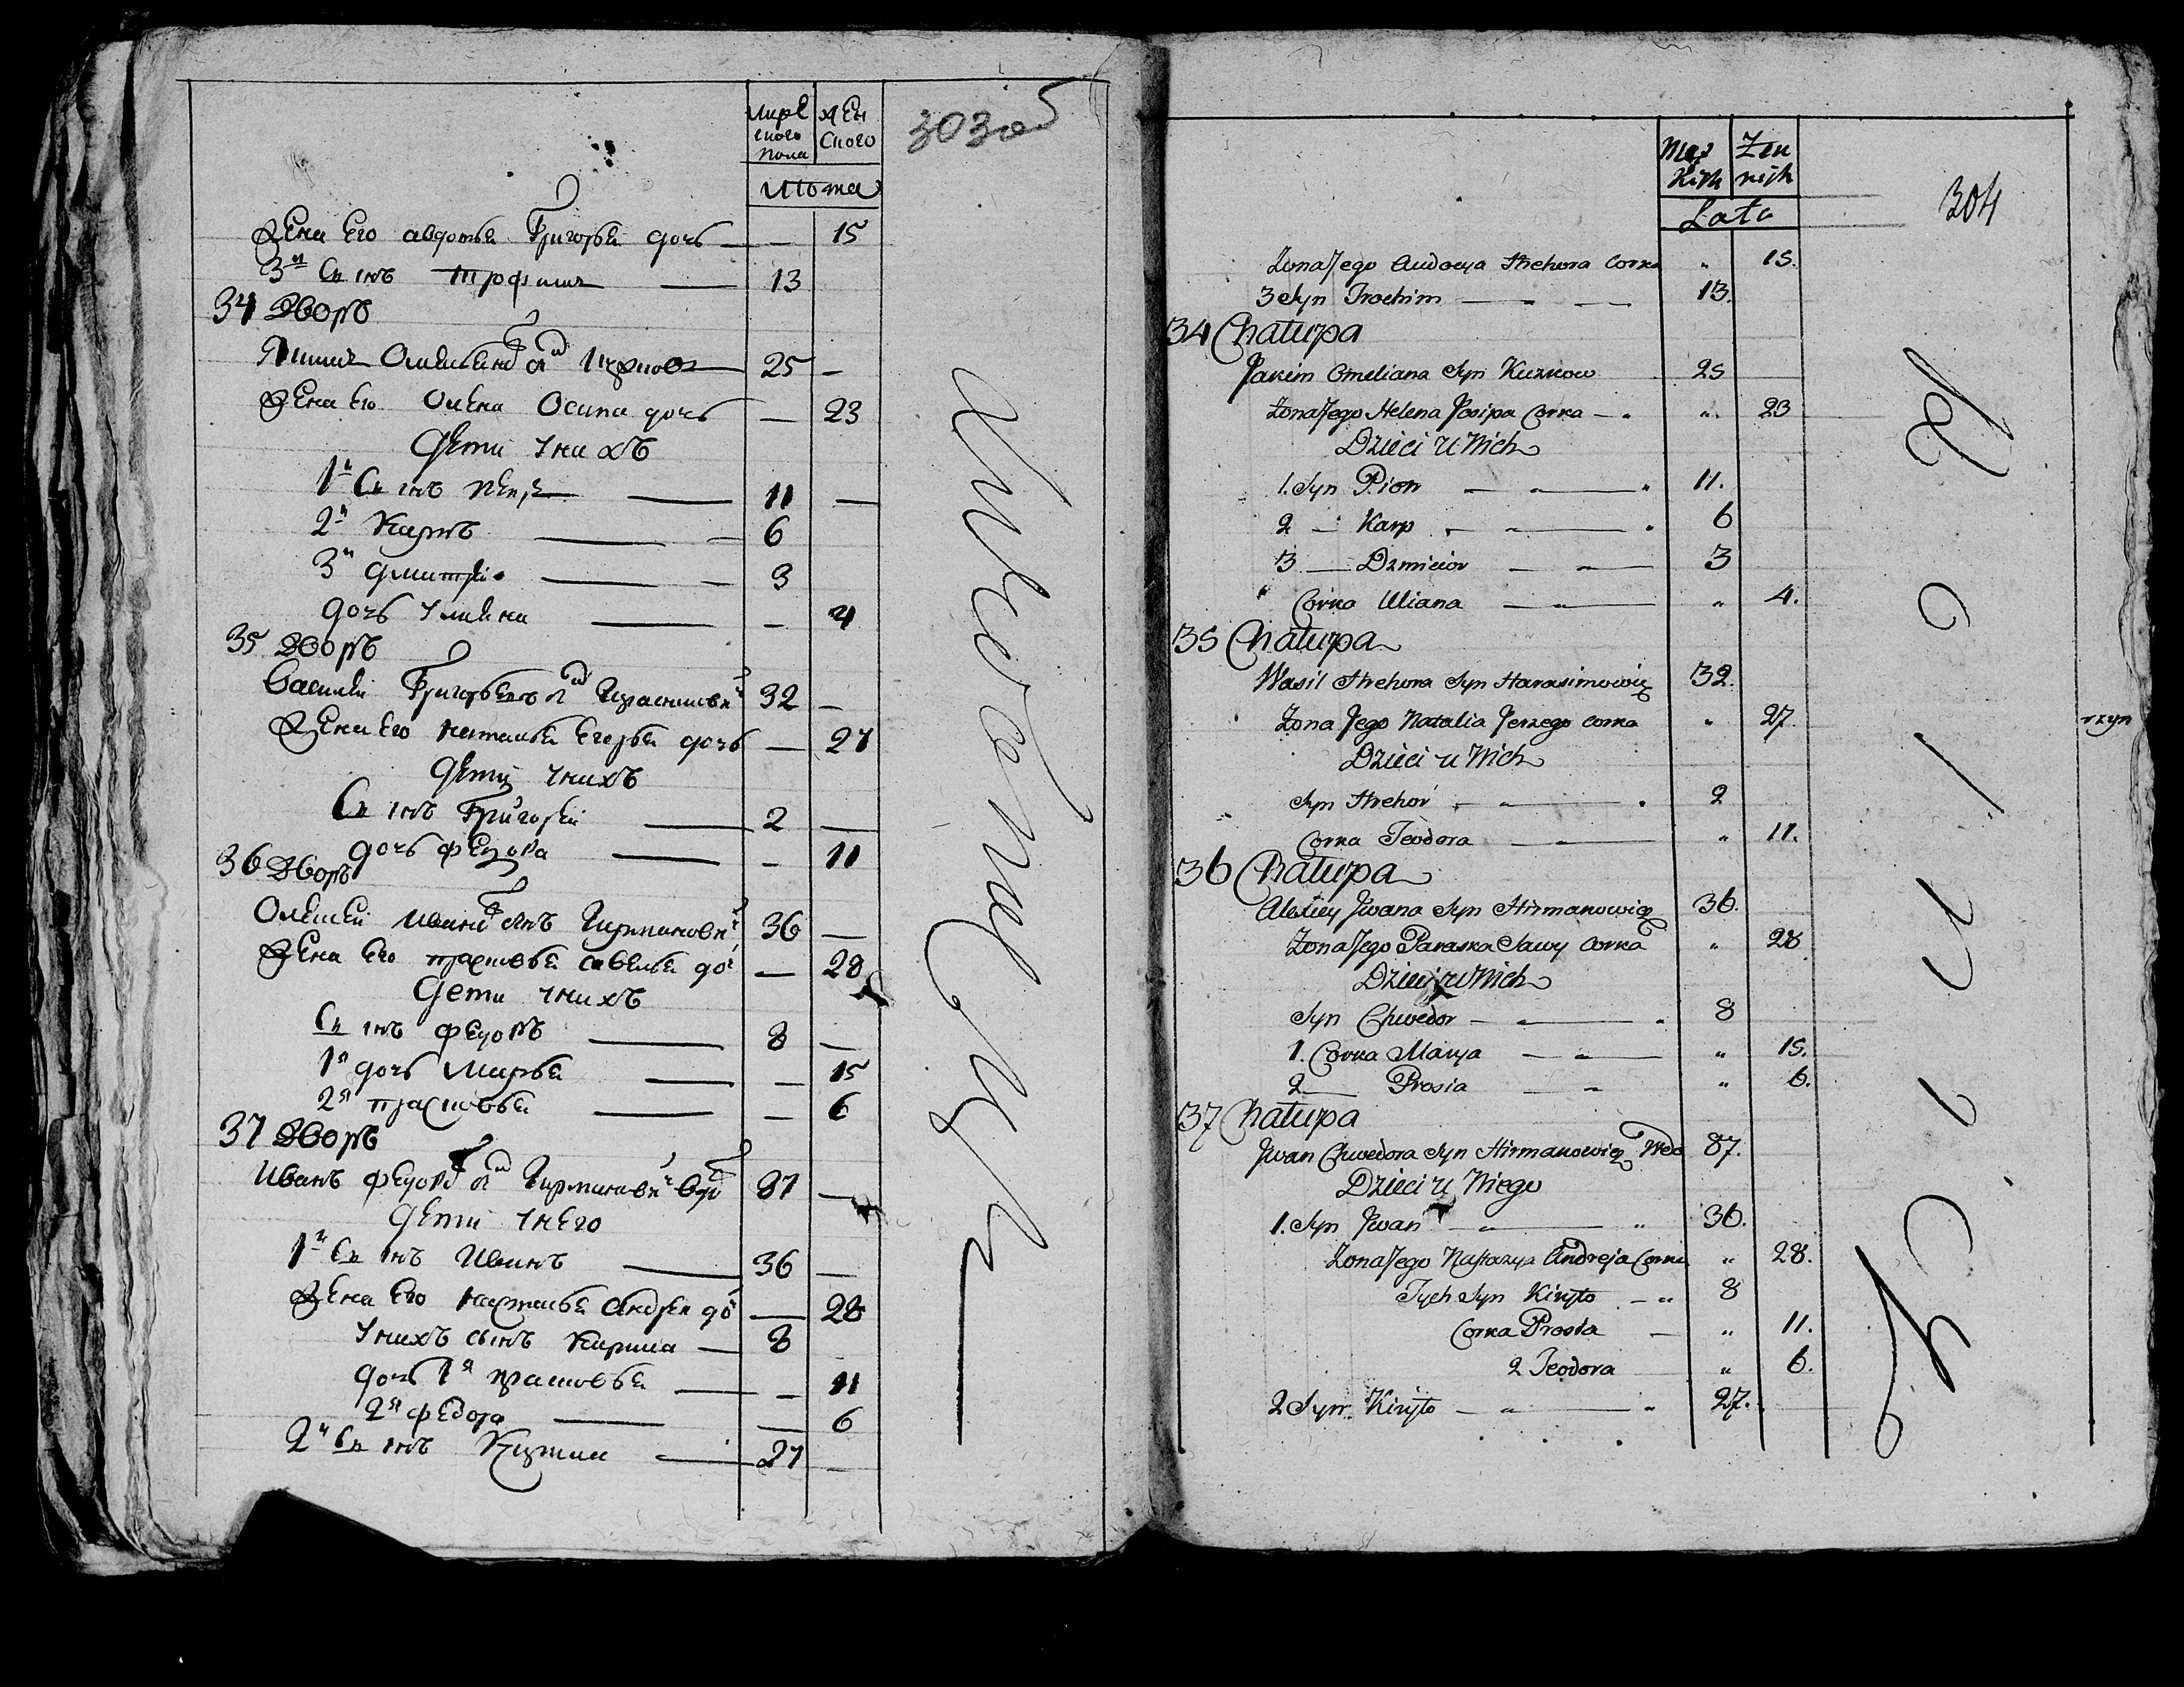 303об
Мужеского пола
Женского
Лѣта
Жена его авдотья Григорья дочь — 15
3й Сынъ трофимъ — 13
34 Дворъ
Якимъ Омельяновъ сынъ 25 —
Жена Его Олена Осипа дочь — 23
дети у нихъ
1й Сынъ петръ — 11 —
2й Карпъ — 6
3й дмитрiй — 3
дочь ульяна — 4
35 Дворъ
Василiй Григорьевъ сынъ 32 —
Жена Его наталья Егорья дочь — 27
дети у нихъ
Сынъ Григорiй — 2 —
дочь федора — — 11
36 Дворъ
Олексей Ивановъ сынъ 36 —
Жена Его прасковья савелья до — 28
дети у нихъ
Сынъ федоръ — 8 —
1я дочь Марья — — 15
2я прасковья — — 6
37 Дворъ
Иванъ федоровъ сынъ 87 —
дети у него
1й Сынъ Иванъ — 36 —
Жена Его настасья Андрея до — 28
у нихъ сынъ Кирила — 8
дочь 1я прасковья — — 11
2я федора — — 6
2й Сынъ — 27 —
304
Męs kich
Żen nich
Lata
Zona Jego Audocya Hrehora Corka " 15.
3 Syn Trochim — " — 13.
34 Chałupa
Jakim Omeliana Syn Kuzkow 25
Zona Jego Helena Josipa Corka — " 23
Dzieci u Nich
1. Syn Piotr — " — 11.
2 — Karp — " — 6
3 — Dzmicior — " — 3
" Corka Uliana — " — " 4.
35 Chałupa
Wasil Hrehora Syn Harasimowicz 32.
Zona Jego Natalia Jerzego corka " 27.
Dzieci u Nich
Syn Hrehor — " — 2
Corka Teodora — " — " 11.
36 Chałupa
Alexiey Jwana Syn Hirmanowicz 36.
Zona Jego Paraska Sawy Corka " 28
Dzieci u Nich
Syn Chwedor — " — 8
1. Corka Marya — " — " 15.
2 — Prosia — " — " 6.
37 Chałupa
Jwan Chwedora Syn Hirmanowicz Wdo 87.
Dzieci u Niego
1. Syn Jwan — " — " 36.
Zona Jego Nastazya Andreja Corka " 28.
Tych Syn Kiryło — " 8
Corka Prosia — " 11.
2 Teodora " 6.
2 Syn Kiryło — " — " 27.